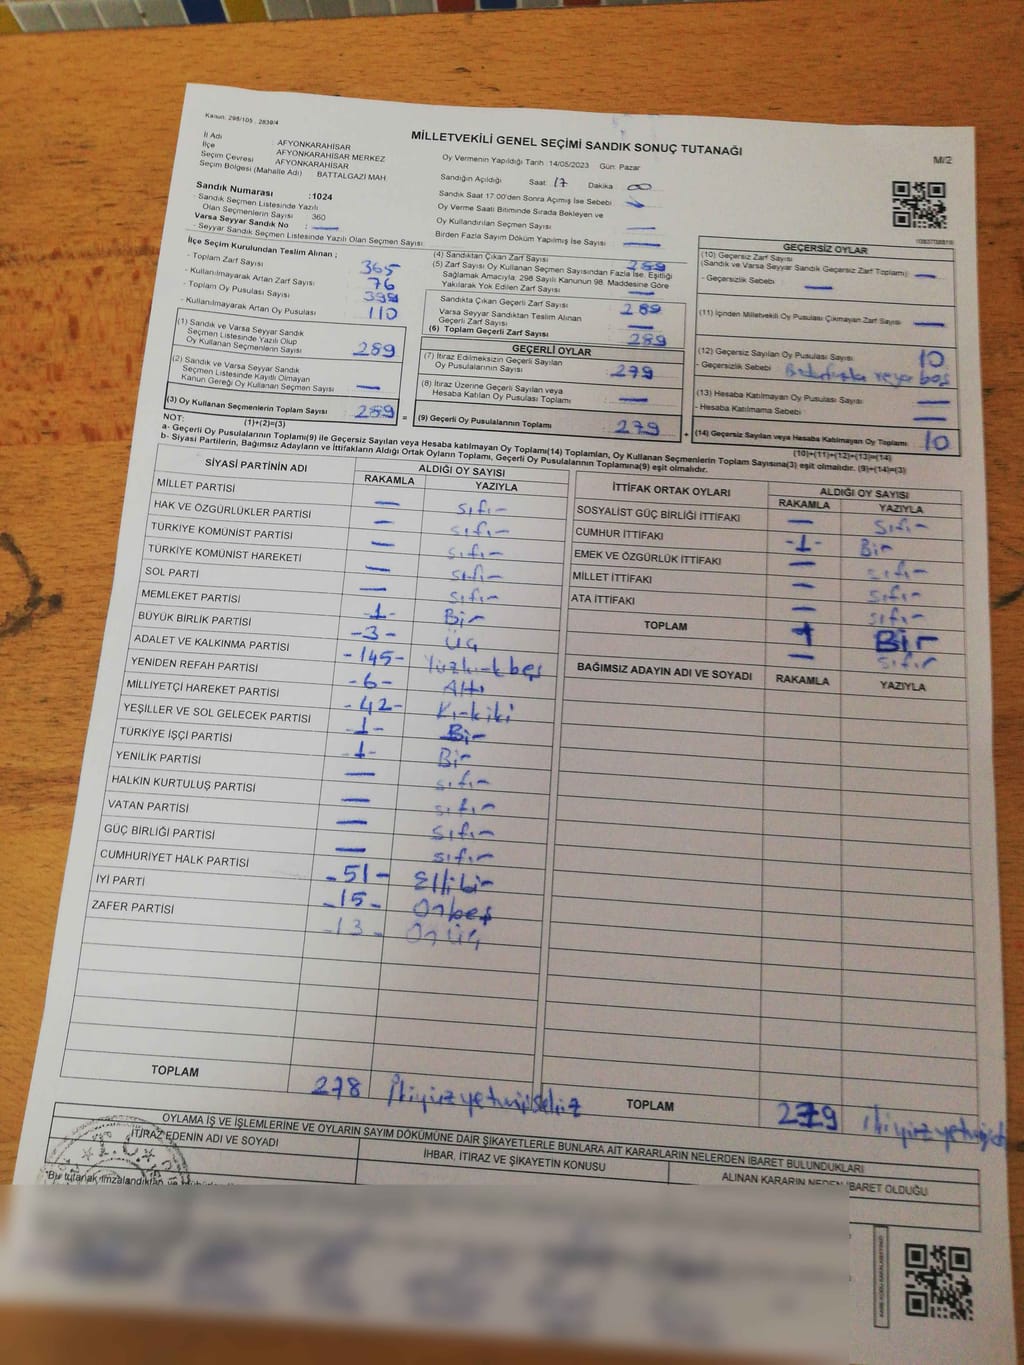 Kanun: 298/105 , 2839/4
MİLLETVEKİLİ GENEL SEÇİMİ SANDIK SONUÇ TUTANAĞI
M/2
İl Adı : AFYONKARAHİSAR
İlçe AFYONKARAHİSAR MERKEZ
Seçim Çevresi AFYONKARAHİSAR
Seçim Bölgesi (Mahalle Adı) BATTALGAZİ MAH.
Sandık Numarası :1024
- Sandık Seçmen Listesinde Yazılı
Olan Seçmenlerin Sayısı 360
Varsa Seyyar Sandık No : —
- Seyyar Sandık Seçmen Listesinde Yazılı Olan Seçmen Sayısı
Oy Vermenin Yapıldığı Tarih :14/05/2023 Gün: Pazar
Sandığın Açıldığı Saat: 17 Dakika 00
Sandık Saat 17:00'den Sonra Açımış İse Sebebi
Oy Verme Saati Bitiminde Sırada Bekleyen ve
Oy Kullandırılan Seçmen Sayısı —
Birden Fazla Sayım Döküm Yapılmış İse Sayısı —
İlçe Seçim Kurulundan Teslim Alınan ;
- Toplam Zarf Sayısı 365
- Kullanılmayarak Artan Zarf Sayısı 76
- Toplam Oy Pusulası Sayısı 399
- Kullanılmayarak Artan Oy Pusulası 110
(1) Sandık ve Varsa Seyyar Sandık
Seçmen Listesinde Yazılı Olup
Oy Kullanan Seçmenlerin Sayısı 289
(2) Sandık ve Varsa Seyyar Sandık
Seçmen Listesinde Kayıtlı Olmayan
Kanun Gereği Oy Kullanan Seçmen Sayısı —
(3) Oy Kullanan Seçmenlerin Toplam Sayısı : 289 =
(1)+(2)=(3)
(4) Sandıktan Çıkan Zarf Sayısı 289
(5) Zarf Sayısı Oy Kullanan Seçmen Sayısından Fazla İse, Eşitliği
Sağlamak Amacıyla; 298 Sayılı Kanunun 98. Maddesine Göre
Yakılarak Yok Edilen Zarf Sayısı —
Sandıkta Çıkan Geçerli Zarf Sayısı 289
Varsa Seyyar Sandıktan Teslim Alınan
Geçerli Zarf Sayısı —
(6) Toplam Geçerli Zarf Sayısı 289
GEÇERLİ OYLAR
(7) İtiraz Edilmeksizin Geçerli Sayılan
Oy Pusulalarının Sayısı : 279
(8) İtiraz Üzerine Geçerli Sayılan veya
Hesaba Katılan Oy Pusulası Toplamı : —
(9) Geçerli Oy Pusulalarının Toplamı : 279 +
GEÇERSİZ OYLAR
(10) Geçersiz Zarf Sayısı
(Sandık ve Varsa Seyyar Sandık Geçersiz Zarf Toplamı) : —
- Geçersizlik Sebebi : —
(11) İçinden Milletvekili Oy Pusulası Çıkmayan Zarf Sayısı : —
(12) Geçersiz Sayılan Oy Pusulası Sayısı : 10
- Geçersizlik Sebebi : veya boş
(13) Hesaba Katılmayan Oy Pusulası Sayısı : —
- Hesaba Katılmama Sebebi —
(14) Geçersiz Sayılan veya Hesaba Katılmayan Oy Toplamı : 10
(10)+(11)+(12)+(13)=(14)
NOT:
a- Geçerli Oy Pusulalarının Toplamı(9) ile Geçersiz Sayılan veya Hesaba katılmayan Oy Toplamı(14) Toplamları, Oy Kullanan Seçmenlerin Toplam Sayısına(3) eşit olmalıdır. (9)+(14)=(3)
b- Siyasi Partilerin, Bağımsız Adayların ve İttifakların Aldığı Ortak Oyların Toplamı, Geçerli Oy Pusulalarının Toplamına(9) eşit olmalıdır.
SİYASİ PARTİNİN ADI ALDIĞI OY SAYISI
RAKAMLA YAZIYLA
MİLLET PARTİSİ — sıfır
HAK VE ÖZGÜRLÜKLER PARTİSİ — sıfır
TÜRKİYE KOMÜNİST PARTİSİ — sıfır
TÜRKİYE KOMÜNİST HAREKETİ — sıfır
SOL PARTİ — sıfır
MEMLEKET PARTİSİ -1- Bir
BÜYÜK BİRLİK PARTİSİ -3- Üç
ADALET VE KALKINMA PARTİSİ -145- Yüzkırkbeş
YENİDEN REFAH PARTİSİ -6- Altı
MİLLİYETÇİ HAREKET PARTİSİ -42- Kırkiki
YEŞİLLER VE SOL GELECEK PARTİSİ -1- Bir
TÜRKİYE İŞÇİ PARTİSİ -1- Bir
YENİLİK PARTİSİ — sıfır
HALKIN KURTULUŞ PARTİSİ — sıfır
VATAN PARTİSİ — sıfır
GÜÇ BİRLİĞİ PARTİSİ — sıfır
CUMHURİYET HALK PARTİSİ -51- Ellibir
İYİ PARTİ -15- Onbeş
ZAFER PARTİSİ -13- Onüç
TOPLAM 278 İkiyüzyetmişsekiz
İTTİFAK ORTAK OYLARI ALDIĞI OY SAYISI
RAKAMLA YAZIYLA
SOSYALİST GÜÇ BİRLİĞİ İTTİFAKI — sıfır
CUMHUR İTTİFAKI -1- Bir
EMEK VE ÖZGÜRLÜK İTTİFAKI — sıfır
MİLLET İTTİFAKI — sıfır
ATA İTTİFAKI — sıfır
TOPLAM 1 Bir
— sıfır
BAĞIMSIZ ADAYIN ADI VE SOYADI RAKAMLA YAZIYLA
TOPLAM 279
OYLAMA İŞ VE İŞLEMLERİNE VE OYLARIN SAYIM DÖKÜMÜNE DAİR ŞİKAYETLERLE BUNLARA AİT KARARLARIN NELERDEN İBARET BULUNDUKLARI
İTİRAZ EDENİN ADI VE SOYADI İHBAR, İTİRAZ VE ŞİKAYETİN KONUSU ALINAN KARARIN NEDEN İBARET OLDUĞU
"Bu tutanak imzalandıktan ve
T.C.